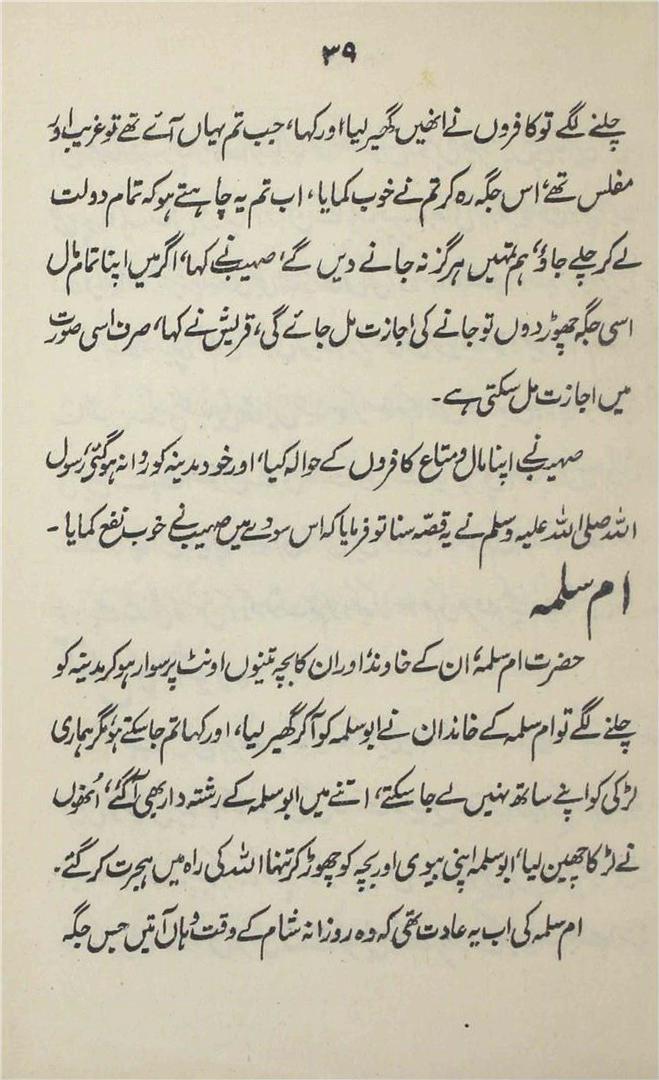 ۳۹
چلنے لگے تو کافروں نے انھیں گھیر لیا اور کہا، جب تم یہاں آئے تھے تو غریب اور
مفلس تھے، اس جگہ رہ کر تم نے خوب کمایا، اب تم یہ چاہتے ہو کہ تمام دولت
لے کر چلے جاؤ، ہم تمہیں ہرگز نہ جانے دیں گے، صہیب نے کہا، اگر میں اپنا تمام مال
اسی جگہ چھوڑ دوں تو جانے کی اجازت مل جائے گی، قریش نے کہا، صرف اسی صورت
میں اجازت مل سکتی ہے۔
صہیب نے اپنا مال و متاع کافروں کے حوالہ کیا، اور خود مدینہ کو روانہ ہو گئے، رسول
اللہ صلی اللہ علیہ وسلم نے یہ قصّہ سنا تو فرمایا کہ اس سودے میں صہیب نے خوب نفع کمایا ۔
ام سلمہ
حضرت ام سلمہ، ان کے خاوند، اور ان کا بچہ تینوں اونٹ پر سوار ہو کر مدینہ کو
چلنے لگے تو ام سلمہ کے خاندان نے ابو سلمہ کو آ کر گھیر لیا، اور کہا تم جا سکتے ہو، مگر ہماری
لڑکی کو اپنے ساتھ نہیں لے جا سکتے، اتنے میں ابو سلمہ کے رشتہ دار بھی آ گئے، اُنھوں
نے لڑکا چھین لیا، ابو سلمہ اپنی بیوی اور بچہ کو چھوڑ کر تنہا اللہ کی راہ میں ہجرت کر گئے۔
ام سلمہ کی اب یہ عادت تھی کہ وہ روزانہ شام کے وقت وہاں آتیں جس جگہ